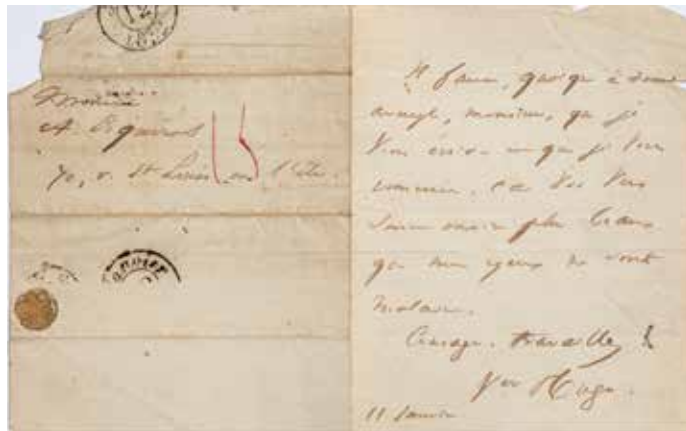 Monsieur
A. Esquiros
70, r. St Louis en l'île.
15
Il faut, quoique à demi
aveugle, monsieur, que je
vous écrive et que je vous
remercie. Car vos vers
sont encore plus beaux
que mes yeux ne sont
malades.
Courage. travaillez !
Vor Hugo.
11 janvier